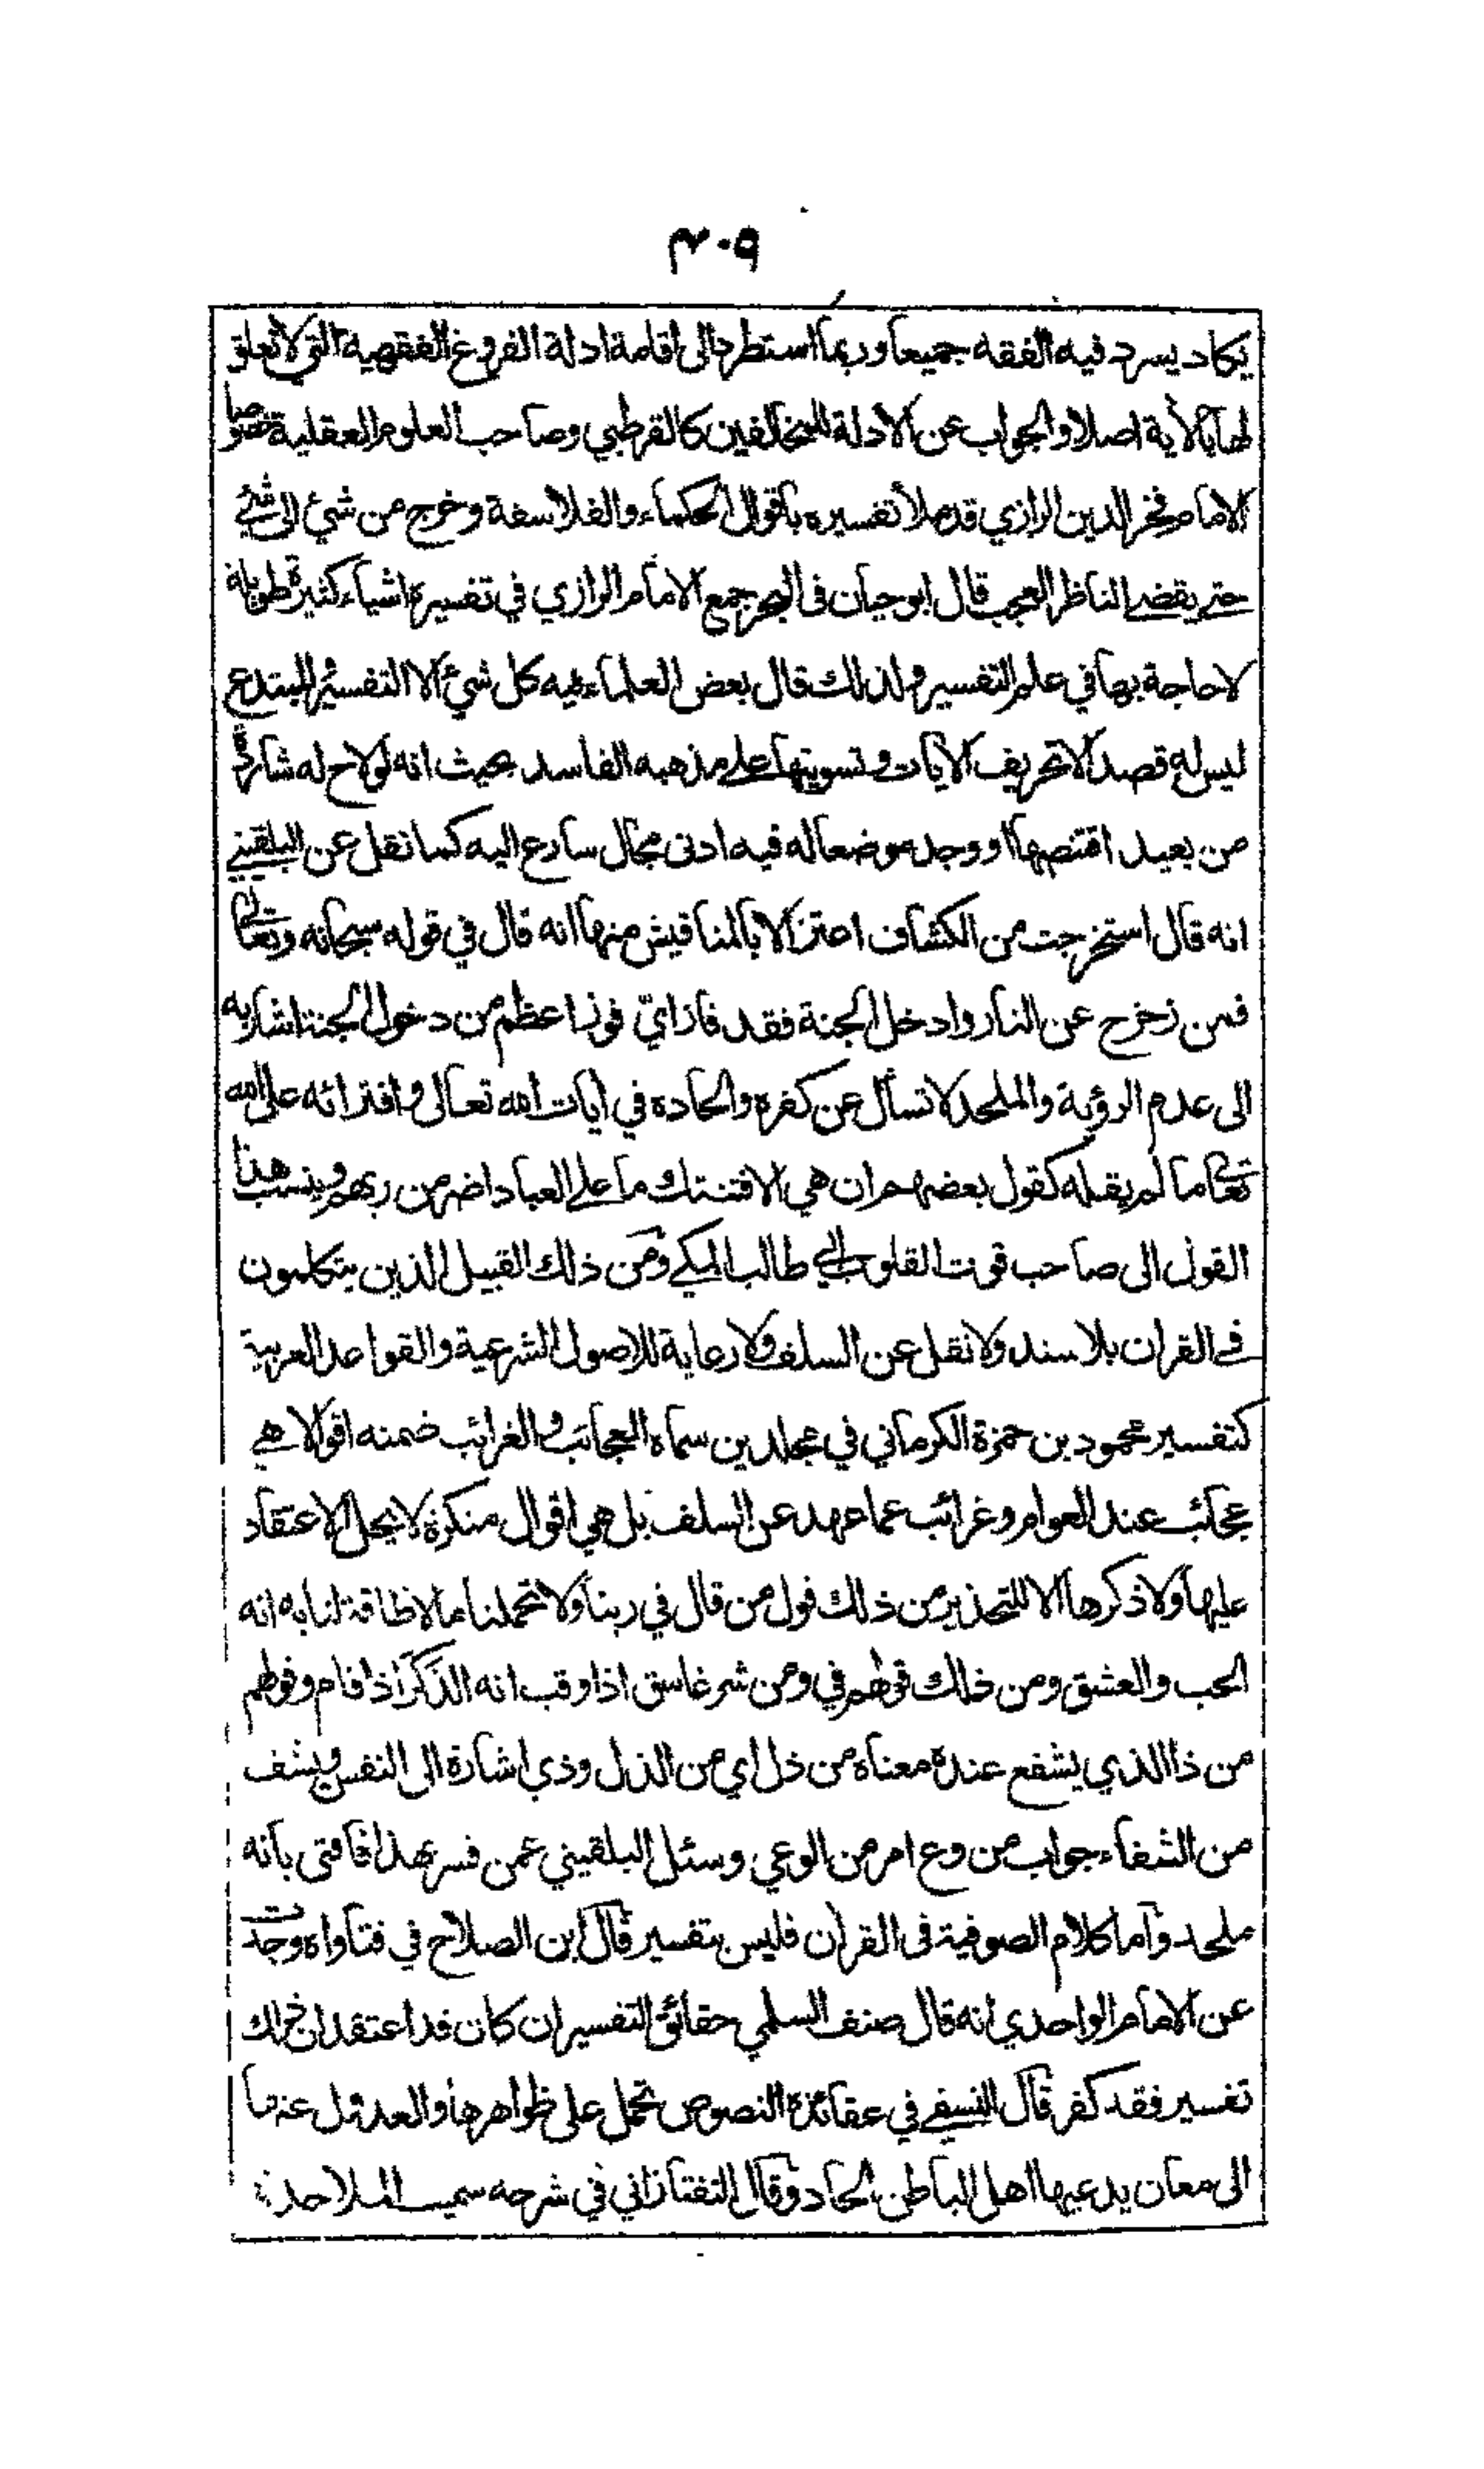 ٣٠٩
يكاد يسرد فيه الفقه جميعا وربما استطرد الى اقامة ادلة الفروع الفقهية التي لا تعلق
لها بالأية اصلا والجواب عن الادلة للمخالفين كالقرطبي وصاحب العلوم العقلية خصوصا
الامام فخر الدين الرازي قد ملأ تفسيره باقوال الحكماء والفلاسفة وخرج من شيء الى شيء
حتى يقضي الناظر العجب قال ابو حيان في البحر جمع الامام الرازي في تفسيره اشياء كثيرة طويلة
لا حاجة بها في علم التفسير ولذلك قال بعض العلماء فيه كل شيء الا التفسير والمبتدع
ليس له قصد الا تحريف الآيات وتسويتها على مذهبه الفاسد بحيث انه لو لاح له شاردة
من بعيد اقتصها او وجد موضعا له فيه ادنى مجال سارع اليه كما نقل عن البلقيني
انه قال استخرجت من الكشاف اعتزالا بالمناقيش منها انه قال في قوله سبحانه وتعالى
فمن زحزح عن النار وادخل الجنة فقد فاز ايّ فوز اعظم من دخول الجنة اشار به
الى عدم الرؤية والملحد لا تسأل عن كفره والحاده في آيات الله تعالى وافترائه على الله
تعالى ما لم يقله كقول بعضهم ان هي الا فتنتك ما على العباد اضر من ربهم وينسب هذا
القول الى صاحب قوت القلوب ابي طالب المكي ومن ذلك القبيل الذين يتكلمون
في القران بلا سند ولا نقل عن السلف ولا رعاية للاصول الشرعية والقواعد العربية
كتفسير محمود بن حمزة الكرماني في مجلدين سماه العجائب والغرائب ضمنه اقوالا هي
عجائب عند العوام وغرائب عما عهد عن السلف بل هي اقوال منكرة لا يحل الاعتقاد
عليها ولا ذكرها الا للتحذير من ذلك قول من قال في ربنا ولا تحملنا ما لا طاقة لنا به انه
الحب والعشق ومن ذلك قولهم في ومن شر غاسق اذا وقب انه الذَّكَر اذا قام وقولهم
من ذا الذي يشفع عنده معناه من ذل اي من الذل وذي اشارة الى النفس ويشف
من الشفاء جواب من وع امر من الوعي وسئل البلقيني عمن فسر بهذا فافتى بانه
ملحد وأما كلام الصوفية في القران فليس بتفسير قال ابن الصلاح في فتاواه وجدت
عن الامام الواحدي انه قال صنف السلمي حقائق التفسير ان كان قد اعتقد ان ذلك
تفسير فقد كفر قال النسفي في عقائده النصوص تحمل على ظواهرها والعدول عنها
الى معان يدعيها اهل الباطن الحاد وقال التفتازاني في شرحه سميت الملاحدة